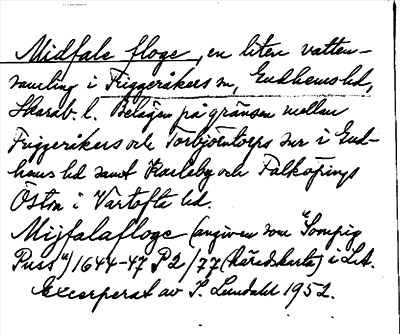 Midfale floge, en liten vatten-
samling i Friggeråkers sn, Gudhems hd,
Skarab. l. Belägen på gränsen mellan
Friggeråkers och Torbjörntorps snr i Gud-
hems hd samt Karleby och Falköpings
Östra i Vartofta hd.
Mijfalafloge (angiven som "Sompig
Puss") 1644-47 P2/77 (Häradskarta) i LSA.
Excerperat av S. Lundahl 1952.